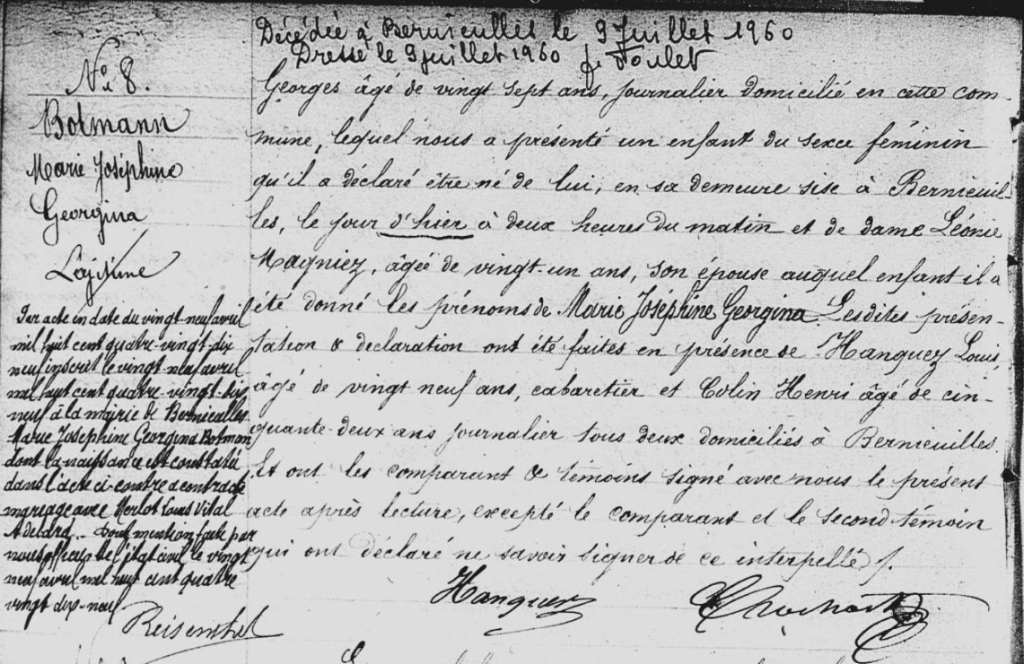 Décédée à Bernieulles le 9 Juillet 1960
Dressé le 9 juillet 1960
N° 8.
Botmann
Marie Joséphine
Georgina
Légitime
Par acte en date du vingt neuf avril
mil huit cent quatre-vingt-dix
neuf inscrit le vingt neuf avril
mil huit cent quatre-vingt-dix
neuf à la mairie de Bernieulles
Marie Josephine Georgina Botman
dont la naissance est constatée
dans l'acte ci-contre a contracté
mariage avec Merlot Louis Vital
Adelard. Dont mention faite par
nous officier de l'état civil le vingt
neuf avril mil huit cent quatre
vingt dix-neuf
Reisenthel
Georges âgé de vingt sept ans, journalier domicilié en cette com-
mune, lequel nous a présenté un enfant du sexe féminin
qu'il a déclaré être né de lui, en sa demeure sise à Bernieuil-
les, le jour d'hier à deux heures du matin et de dame Léonie
Magniez, âgée de vingt-un ans, son épouse auquel enfant il a
été donné les prénoms de Marie Joséphine Georgina. Lesdites présen-
tation & déclaration ont été faites en présence de Hanquez Louis,
âgé de vingt neuf ans, cabaretier et Colin Henri âgé de cin-
quante-deux ans journalier tous deux domiciliés à Bernieuilles.
Et ont les comparant & témoins signé avec nous le présent
acte après lecture, excepté le comparant et le second témoin
qui ont déclaré ne savoir signer de ce interpellés /.
Hanquez